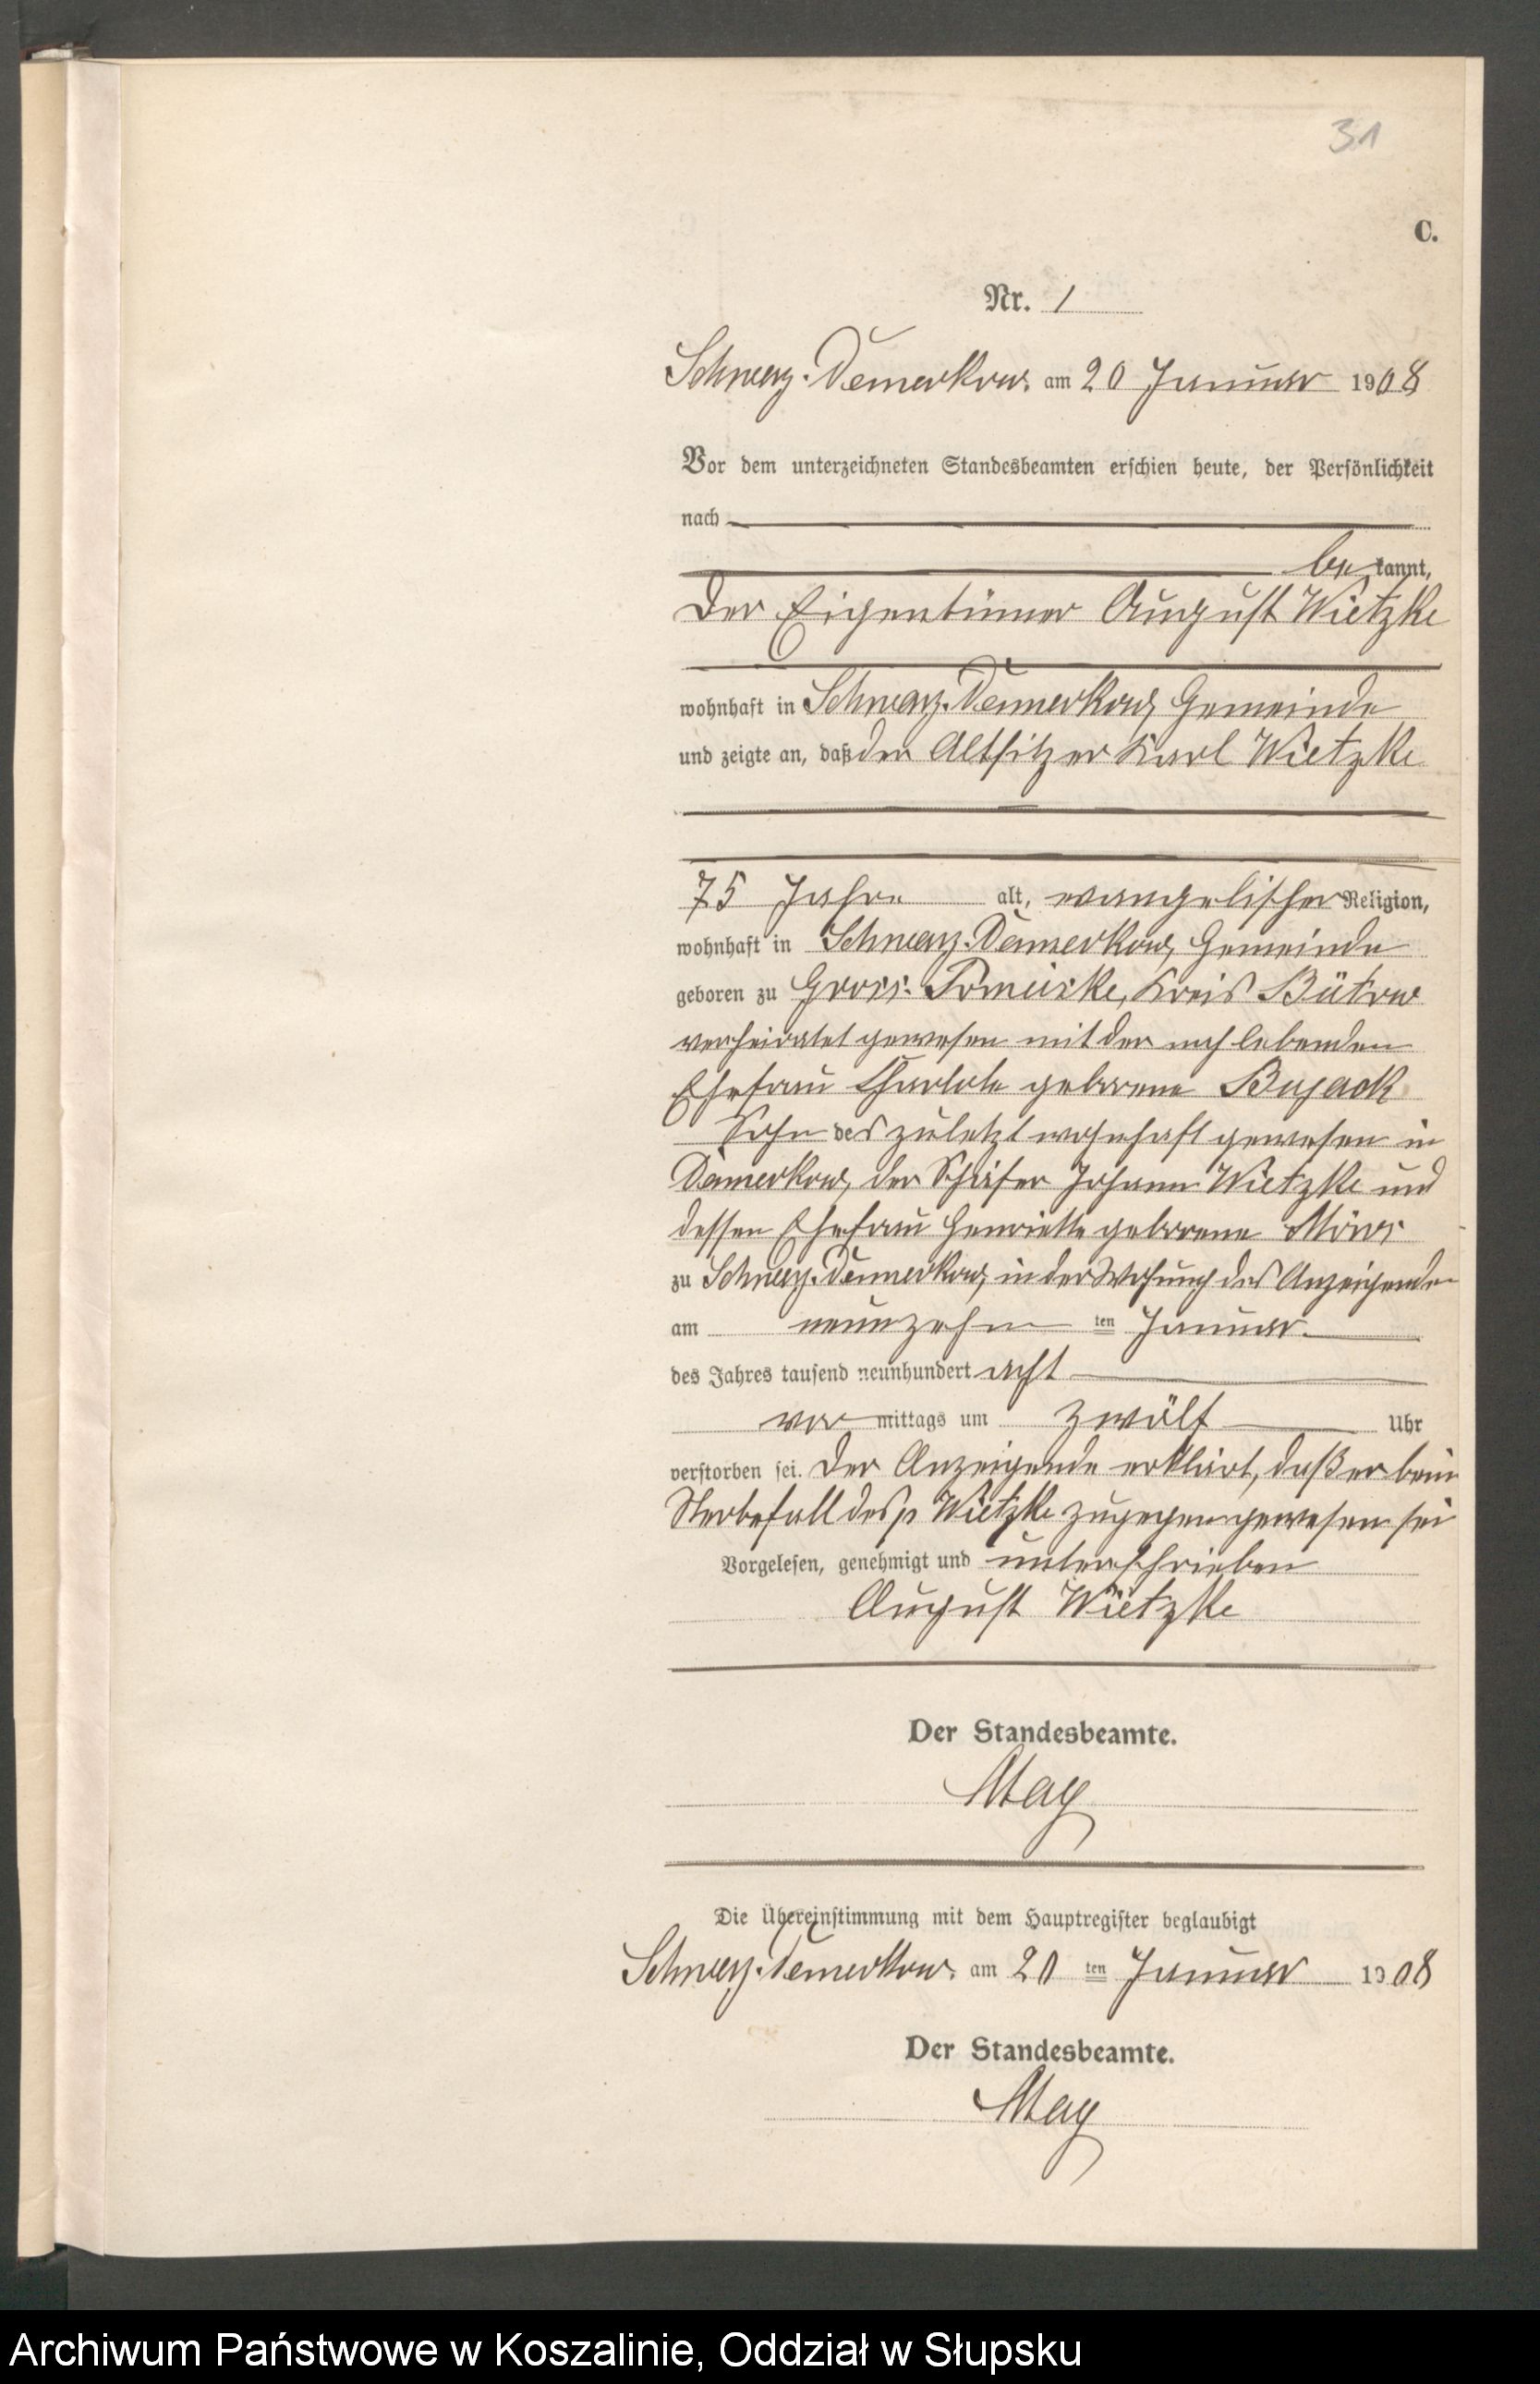 31
C.
Nr. 1
Schwarz-Damerkow, am 20 Januar 1908
Vor dem unterzeichneten Standesbeamten erschien heute, der Persönlichkeit
nach
be kannt,
Der Eigentümer August Wietzke
wohnhaft in Schwarz-Damerkow, Gemeinde
und zeigte an, daß der Altsitzer Karl Wietzke
75 Jahre alt, evangelischer Religion,
wohnhaft in Schwarz-Damerkow, Gemeinde
geboren zu Gross-Tomeiske, Kreis Bütow
verheiratet gewesen mit der noch lebenden
Ehefrau Charlote geborene Bujack
Sohn des zuletzt wohnhaft gewesen in
Damerkow, der Schäfer Johann Wietzke und
dessen Ehefrau Henriette geborene
zu Schwarz-Damerkow, in der Wohnung des Anzeigenden
am neunzehn ten Januar
des Jahres tausend neunhundert acht
vor mittags um zwölf Uhr
verstorben sei. Der Anzeigende erklärt, daß er beim
Sterbefall des p Wietzke zugegen gewesen sei
Vorgelesen, genehmigt und unterschrieben
August Wietzke
Der Standesbeamte.
May
Die Übereinstimmung mit dem Hauptregister beglaubigt
Schwarz-Damerkow, am 20 ten Januar 1908
Der Standesbeamte.
May
Archiwum Państwowe w Koszalinie, Oddział w Słupsku